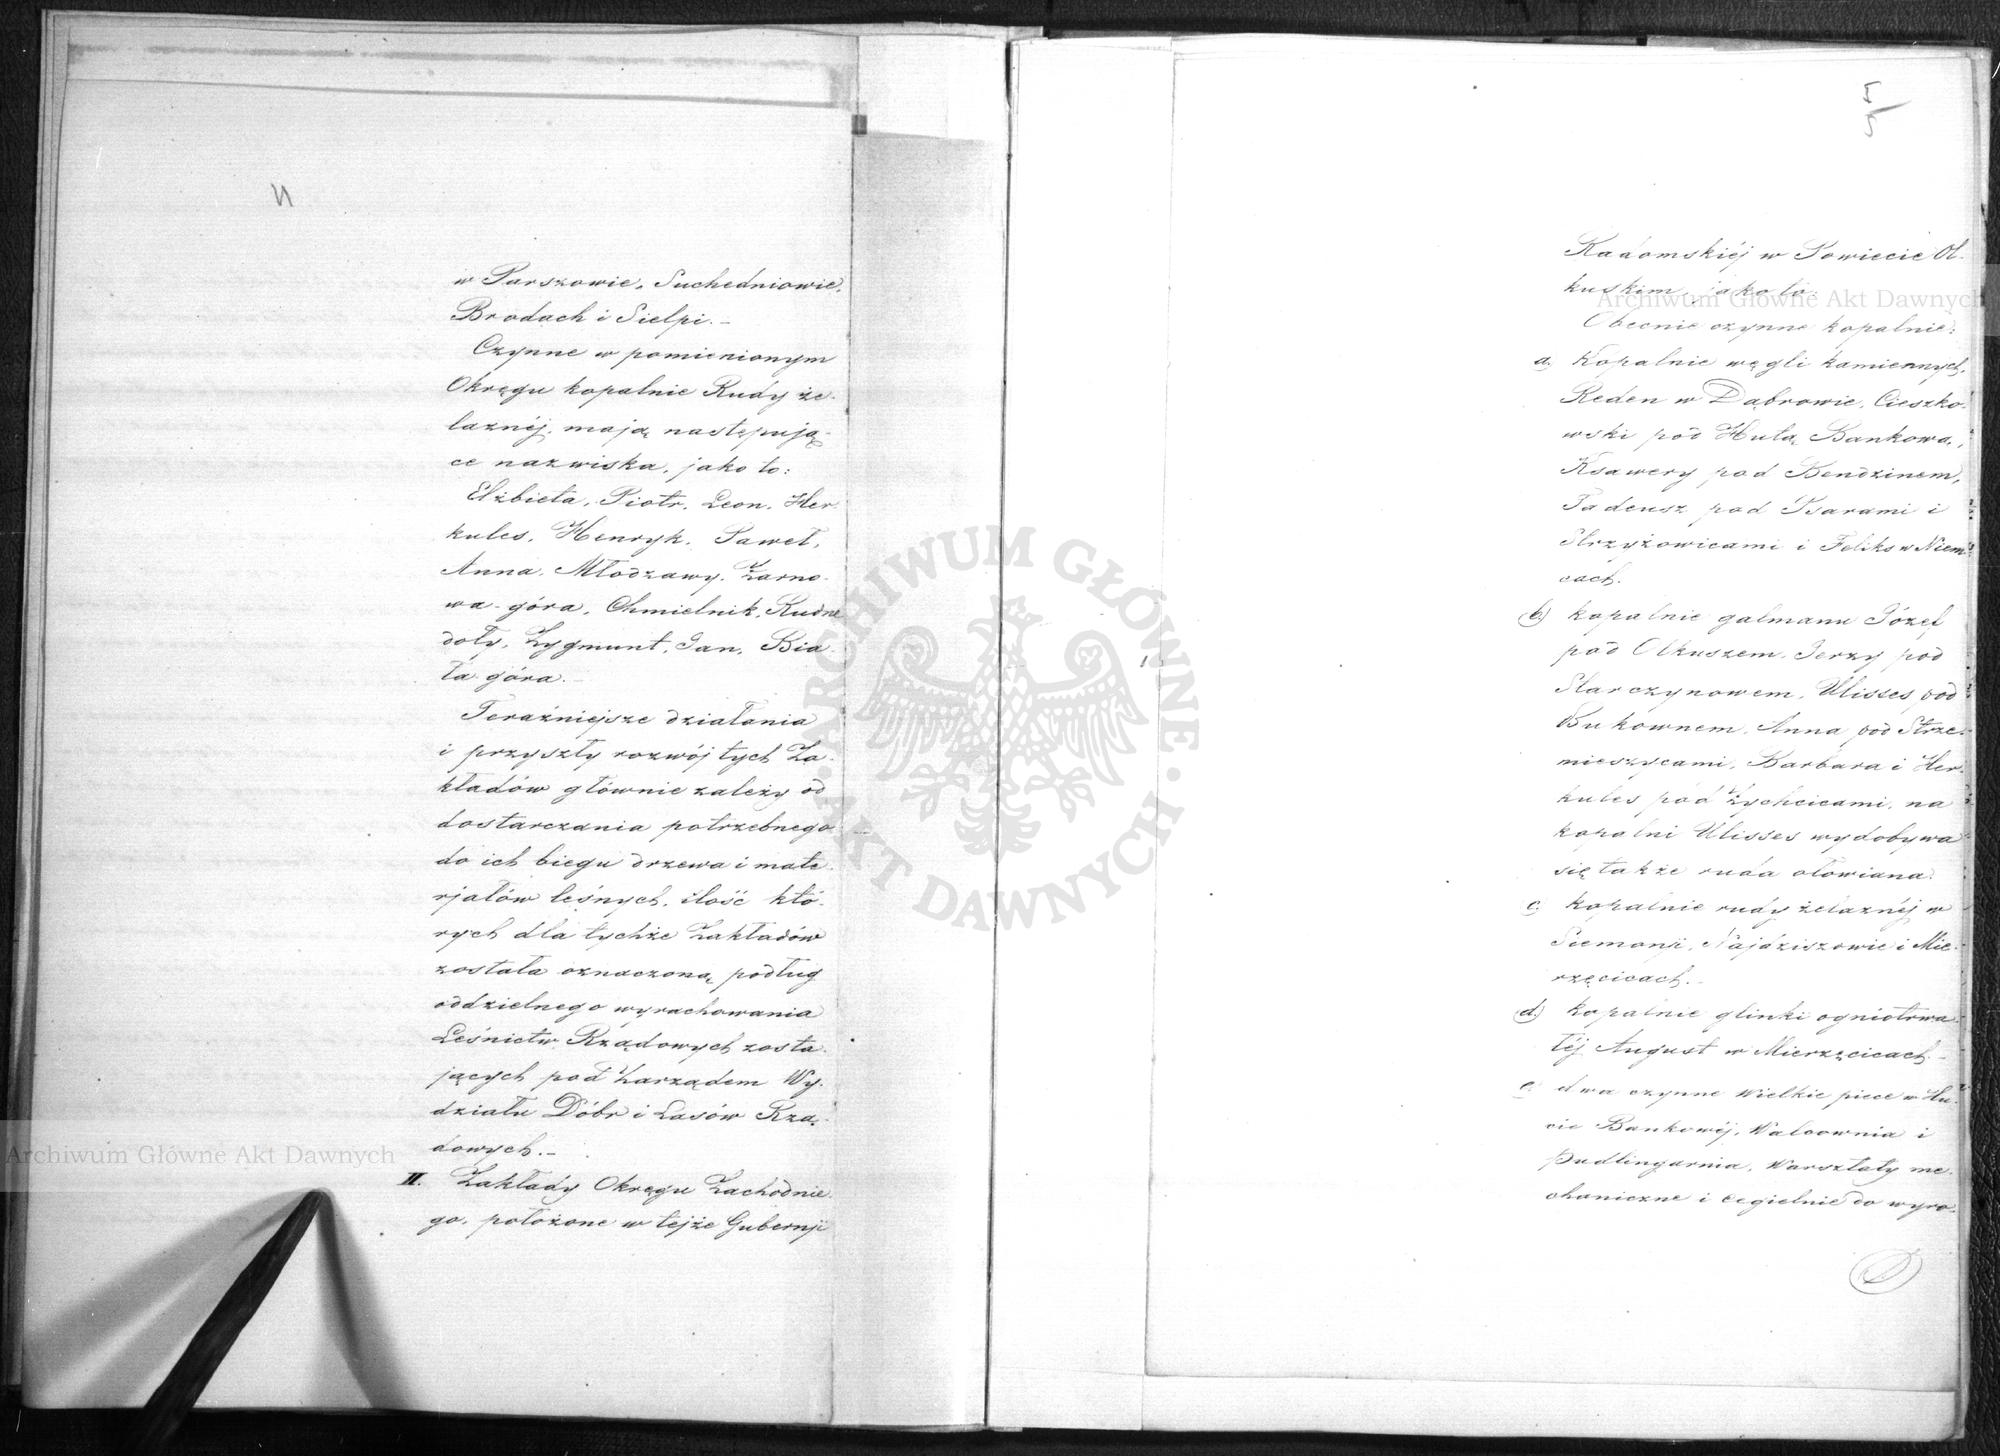 w Parszowie, Suchedniowie,
Brodach i Sielpi. –
Czynne w pomienionym
Okręgu kopalnie Rudy że-
laznéj, mają następują-
ce nazwiska, jako to:
Elżbieta, Piotr, Leon, Her-
kules, Henryk, Paweł,
Anna, Młodzawy, Żarno-
wa-góra, Chmielnik, Rudne
doły, Zygmunt, Jan, Bia-
ła góra. –
Teraźniejsze działania
i przyszły rozwój tych Za-
kładów głównie zależy od
dostarczania potrzebnego
do ich biegu drzewa i mate-
rjałów leśnych, ilość któ-
rych dla tychże Zakładów
została oznaczoną podług
oddzielnego wyrachowania
Leśnictw Rządowych zosta-
jących pod Zarządem Wy-
działu Dóbr i Lasów Rzą-
dowych. –
II. Zakłady Okręgu Zachodnie-
go, położone w tejże Gubernji
Radomskiéj w Powiecie Ol-
kuskim, jako to:
Obecnie czynne kopalnie:
a. Kopalnie węgli kamiennych,
Reden w Dąbrowie, Cieszko-
wski pod Hutą Bankową,
Ksawery pod Bendzinem,
Tadeusz pod Psarami i
Strzyżowicami i Feliks w Niem-
cach.
b) kopalnie galmanu Józef
pod Olkuszem, Jerzy pod
Starczynowem, Ulisses pod
Bukownem, Anna pod Strze-
mieszycami, Barbara i Her-
kules pod Żychcicami, na
kopalni Ulisses wydobywa
się także ruda ołowiana.
c. kopalnie rudy żelaznéj w
Siemonji, Najdziszowie i Mie-
rzęcicach. –
d) kopalnie glinki ogniotrwa-
łéj August w Mierzęcicach –
e. dwa czynne Wielkie piece w Hu-
cie Bankowéj, Walcownia i
Pudlingarnia, Warsztaty me-
chaniczne i cegielnie do wyro-
ARCHIWUM GŁÓWNE AKT DAWNYCH
Archiwum Główne Akt Dawnych
Archiwum Główne Akt Dawnych